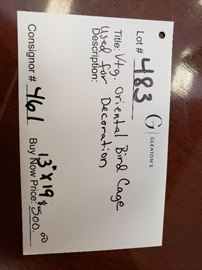 Lot # 483
G
GLEATON'S
Title: Vtg. Oriental Bird Cage
Used for Decoration
Description:
13" x 19
Consignor # 461
Buy Now Price: $500.00